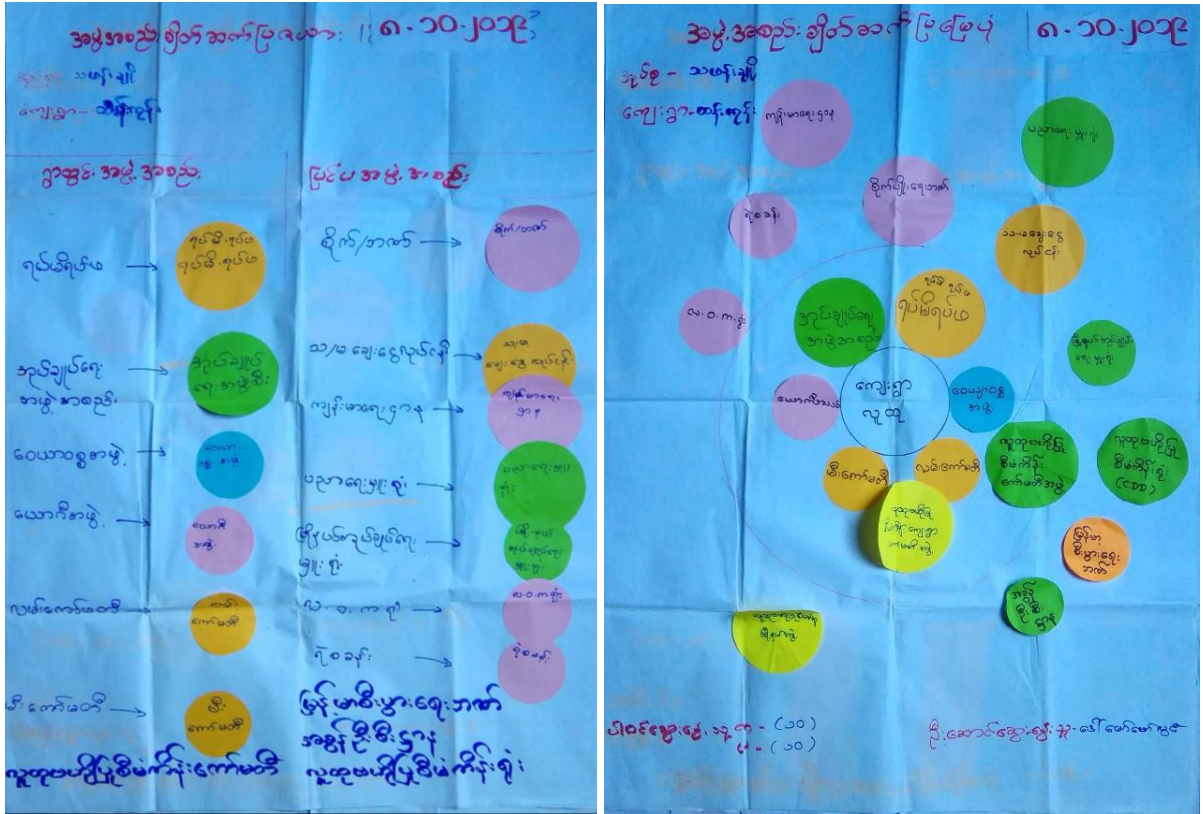 အဖွဲ့အစည်းချိတ်ဆက်ပြဇယား ၈.၁၀.၂၀၁၉
အုပ်စု - သဖန်းချို
ကျေးရွာ - ထိန်ကုန်း
ရွာတွင်းအဖွဲ့အစည်း
ပြင်ပအဖွဲ့အစည်း
ရပ်မိရပ်ဖ
ရပ်မိ.ရပ်ဖ
ရပ်မိ.ရပ်ဖ
အုပ်ချုပ်ရေး
အဖွဲ့အစည်း
အုပ်ချုပ်
ရေးအဖွဲ့စီး
ဝေယာဝစ္စအဖွဲ့
ယောဂီအဖွဲ့
ယောဂီ
အဖွဲ့
လမ်းကော်မတီ
လမ်း
ကော်မတီ
မီးကော်မတီ
မီး
ကော်မတီ
လူထုဗဟိုပြုစီမံကိန်းကော်မတီ
စိုက်/ဘဏ်
စိုက်/ဘဏ်
သ/မ ချေးငွေလုပ်ငန်း
သ/မ
ချေးငွေ လုပ်ငန်း
ကျန်းမာရေးဌာန
ကျန်းမာရေး
ဌာန
ပညာရေးမှူးရုံး
ပညာရေးမှူး
ရုံး
မြို့နယ်အုပ်ချုပ်ရေး
မှူးရုံး
မြို့နယ်
အုပ်ချုပ်ရေး
မှူးရုံး
လ.ဝ.က ရုံး
လ.ဝ.က ရုံး
ရဲစခန်း
ရဲစခန်း
မြန်မာစီးပွားရေးဘဏ်
အခွန်ဦးစီးဌာန
လူထုဗဟိုပြုစီမံကိန်းရုံး
အဖွဲ့အစည်းချိတ်ဆက်ပြမြေပုံ ၈.၁၀.၂၀၁၉
အုပ်စု - သဖန်းချို
ကျေးရွာ - ထန်းကုန်း
ကျန်းမာရေးဌာန
ပညာရေးမှူးရုံး
စိုက်ပျိုးရေးဘဏ်
ရဲစခန်း
သ-မ ချေးငွေ
လုပ်ငန်း
လ.ဝ.က.ရုံး
အုပ်ချုပ်ရေး
အဖွဲ့အစည်း
ရပ်မိ ရပ်ဖ
ရပ်မိရပ်ဖ
မြို့နယ်အုပ်ချုပ်
ရေးမှူးရုံး
ကျေးရွာ
လူထု
ဝေယျာဝစ္စ
အဖွဲ့
မီးကော်မတီ
လမ်းကော်မတီ
လူထုဗဟိုပြု
စီမံကိန်း
ကော်မတီအဖွဲ့
လူထုဗဟိုပြု
စီမံကိန်းရုံး
(CDD)
လူထုဗဟိုပြု
မြန်မာ့
စီးပွားရေး
ဘဏ်
အခွန်
ဦးစီး
ဌာန
ပါဝင်ဆွေးနွေးသူ ကျား - (၁၀)
မ - (၁၀)
ဦးဆောင်ဆွေးနွေးသူ-ဒေါ်မော်မော်